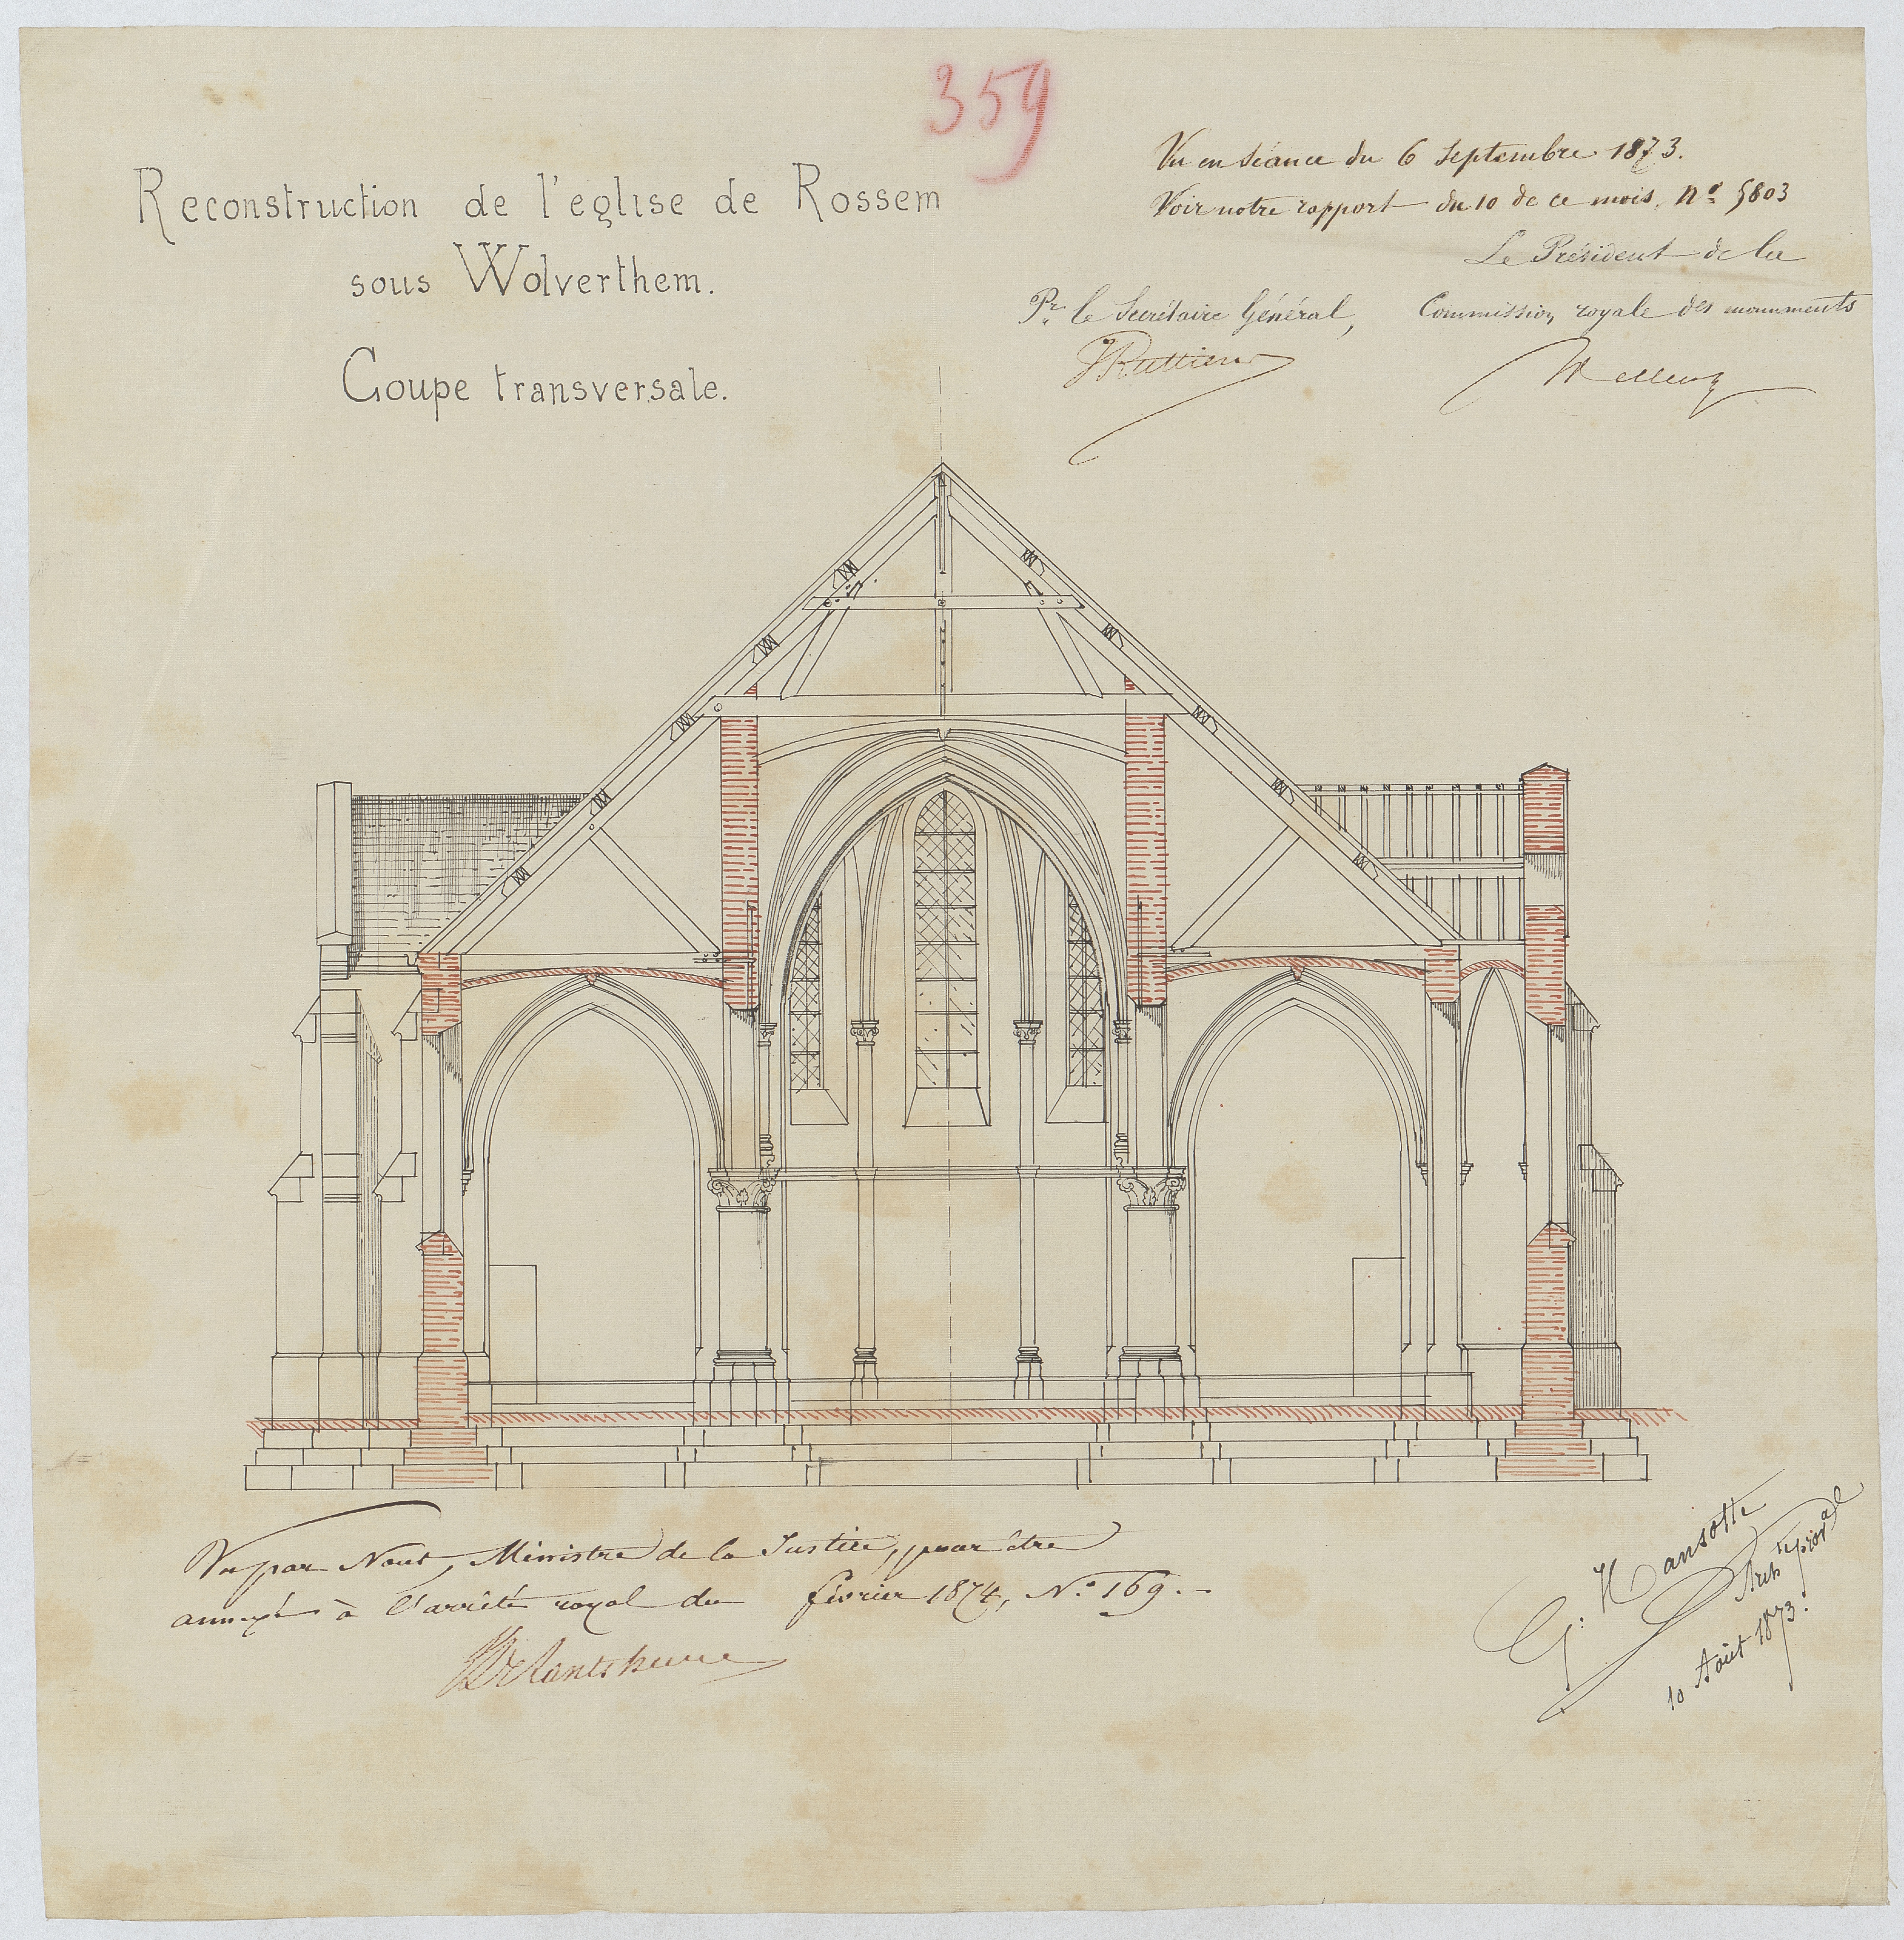 359
Reconstruction de l'église de Rossem
sous Wolverthem.
Coupe transversale.
Vu en séance du 6 Septembre 1873.
Voir notre rapport du 10 de ce mois, Nº 5803
Le Président de la
Commission royale des monuments
Pr le Secrétaire Général,
Wellens
Vu par Nous, Ministre de la Justice, pour être
annexé à l'arrêté royal du février 1874, Nº 169.
G. Hansotte
Arch te prov al
10 Août 1873.